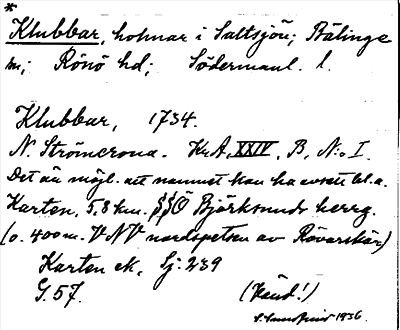 *
Klubbar, holmar i Saltsjön; Bälinge
sn; Rönö hd; Södermanl. l.
Klubbar, 1734.
N. Strömcrona. Kr.A. XXIV, B, N:o I.
Det är möjl. att namnet kan ha avsett bl.a.
Karten, 5,8 km. SSÖ Björksunds herrg.
(o. 400 m. VNV nordspetsen av Rävarskär)
Karten ek. Sj. 239
G. 57. (Vänd!)
1936.